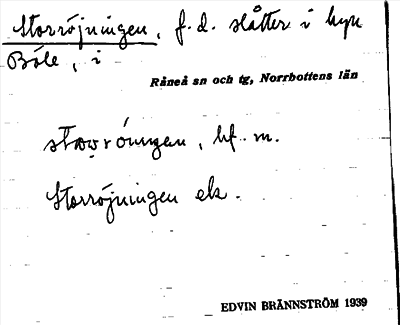 Storröjningen, f.d. slåtter i byn
Böle, i
Råneå sn och tg, Norrbottens län
bf. m.
Storröjningen ek.
EDVIN BRÄNNSTRÖM 1939